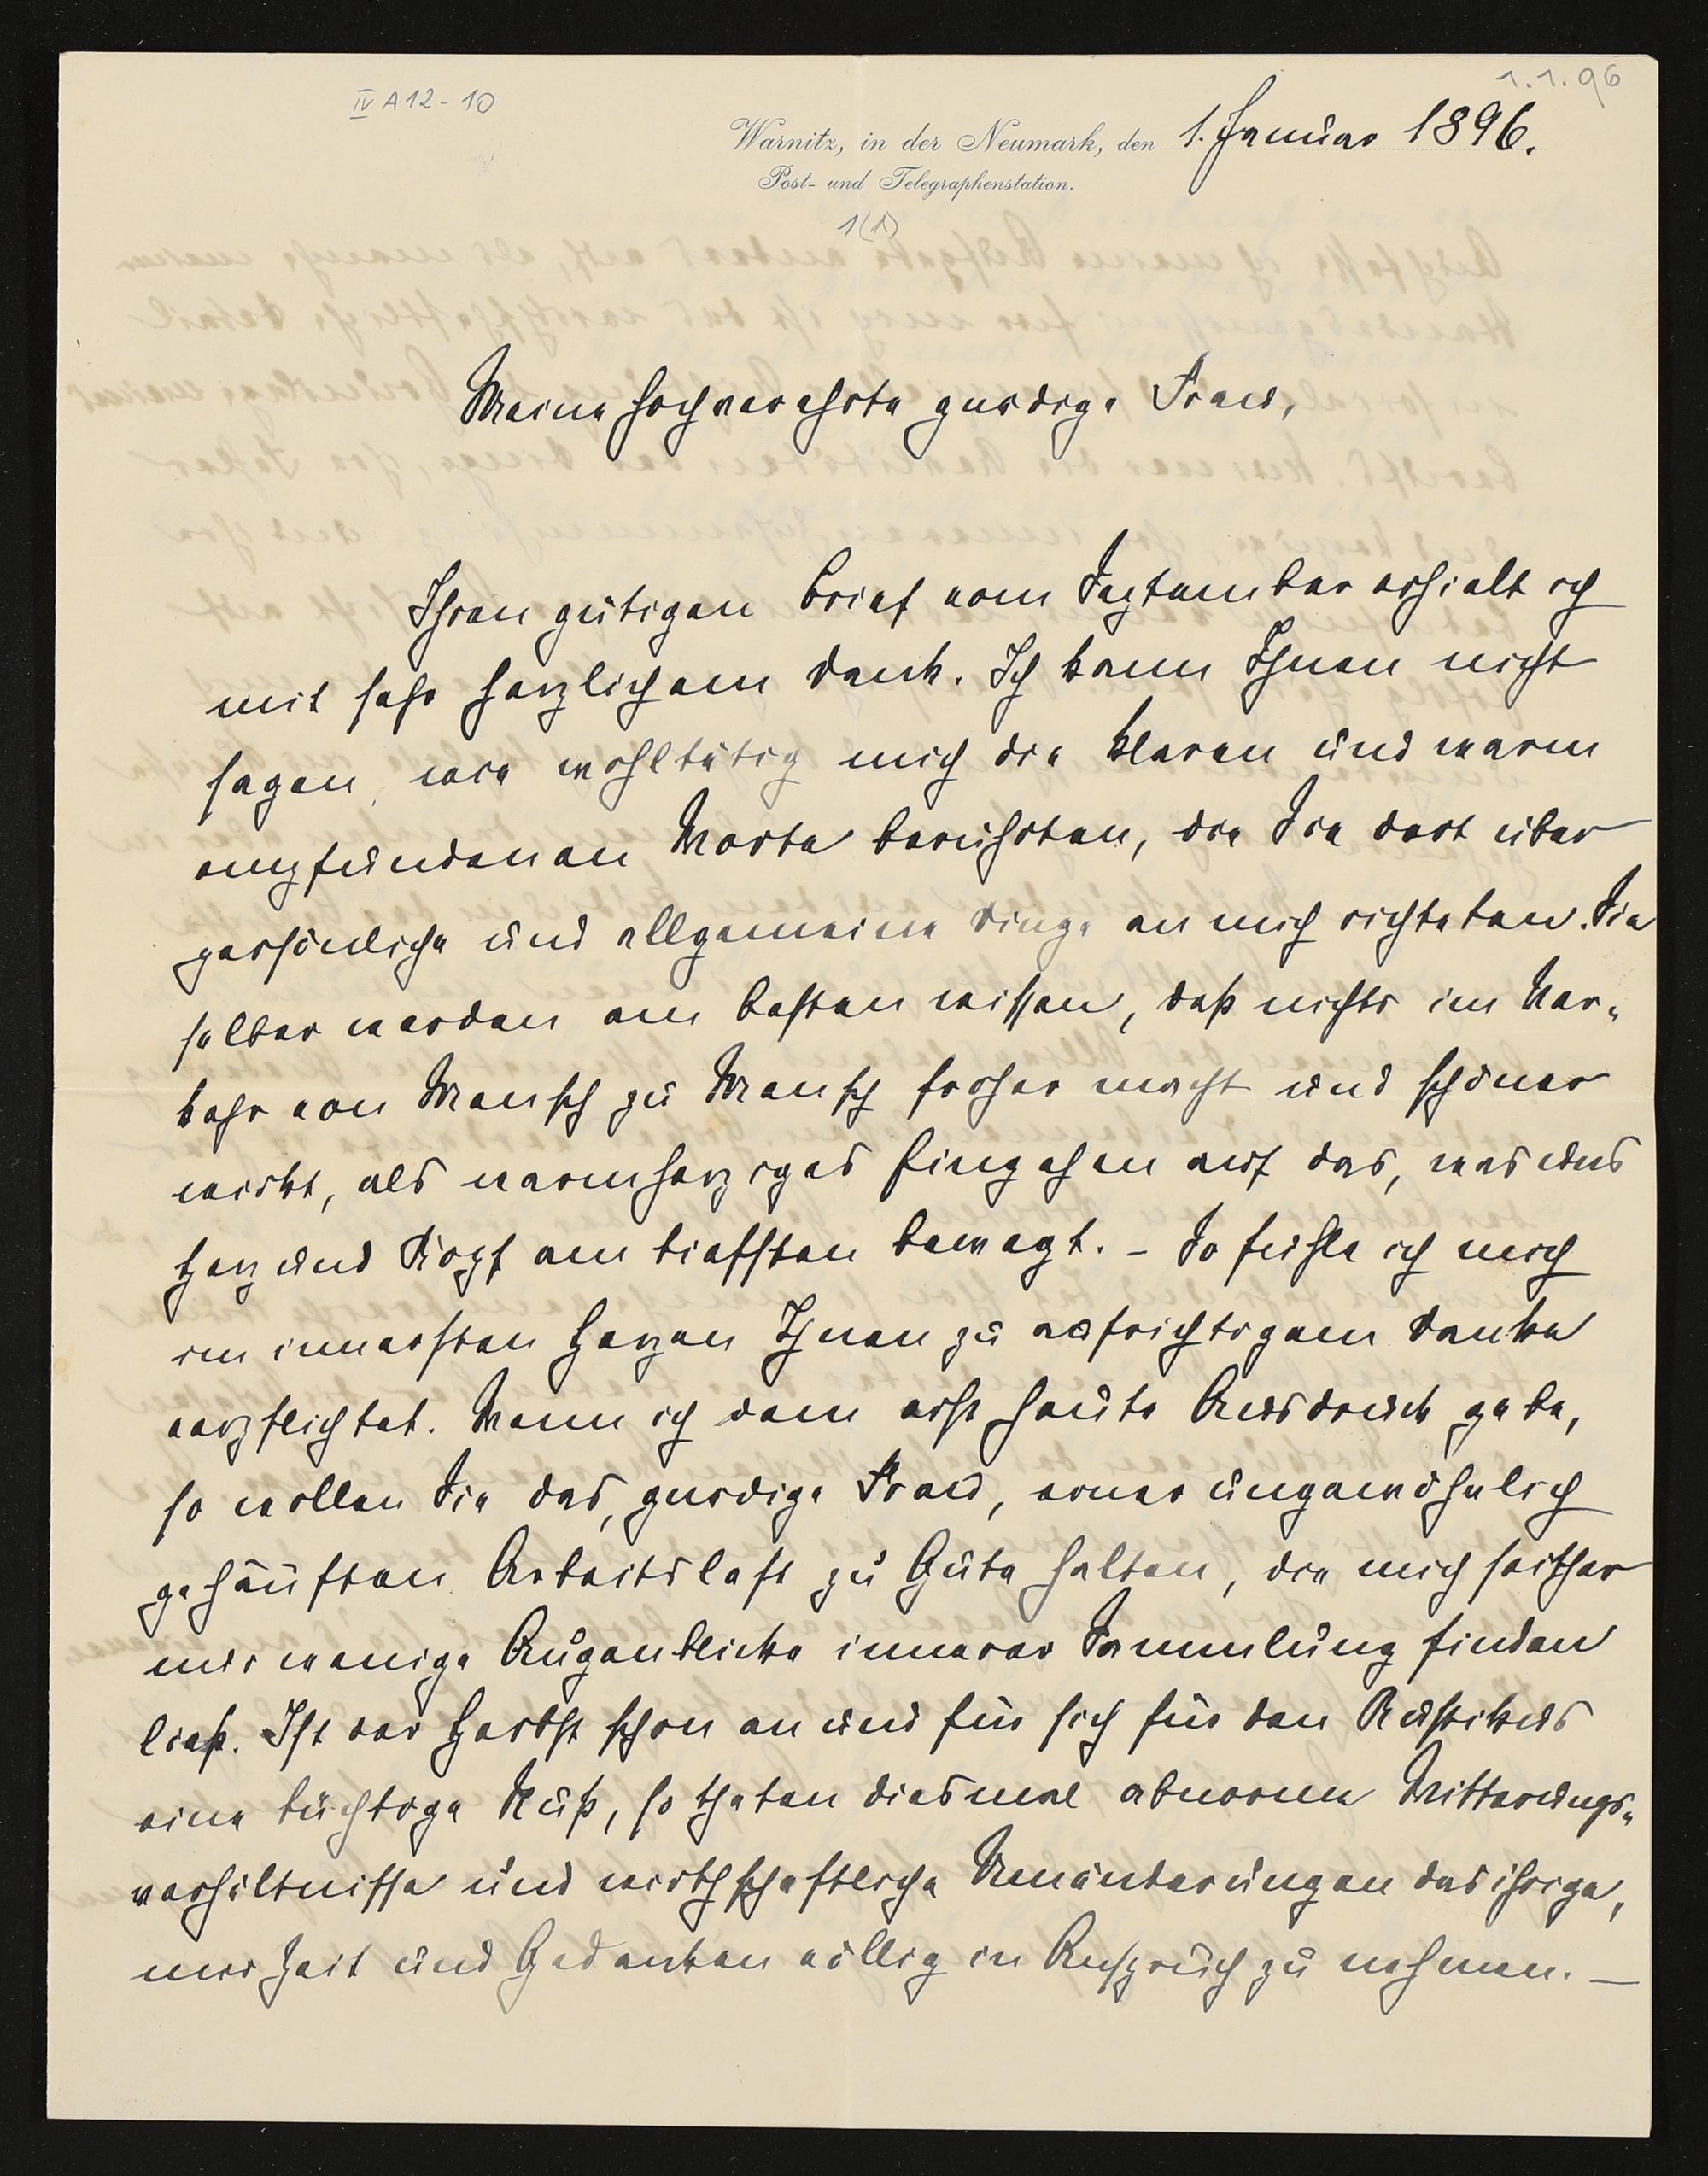 IV A12-10
1.1.96
Warnitz, in der Neumark, den 1. Januar 1896.
Post- und Telegraphenstation.
1(1)
Meine hochverehrte gnädige Frau,
Ihren gütigen Brief vom September erhielt ich
mit sehr herzlichem Dank. Ich kann Ihnen nicht
sagen, wie wohltätig mich die klaren und warm
empfundenen Worte berührten, die Sie dort über
persönliche und allgemeine Dinge an mich richteten. Sie
selber werden am besten wissen, daß nichts im Ver-
kehr von Mensch zu Mensch froher macht und schöner
wirkt, als warmherziges Eingehen auf das, was uns
Herz und Kopf am tiefsten bewegt. – So fühle ich mich
im innersten Herzen Ihnen zu aufrichtigem Danke
verpflichtet. Wenn ich dem erst heute Ausdruck gebe,
so wollen Sie das, gnädige Frau, einer ungewöhnlich
gehäuften Arbeitslast zu Gute halten, die mich seither
nur wenige Augenblicke innerer Sammlung finden
ließ. Ist der Herbst schon an und für sich für den Rustikus
eine tüchtige Nuß, so thaten diesmal abnorme Witterungs-
verhältnisse und wirthschaftliche Umänderungen das ihrige,
mir Zeit und Gedanken völlig in Anspruch zu nehmen. –